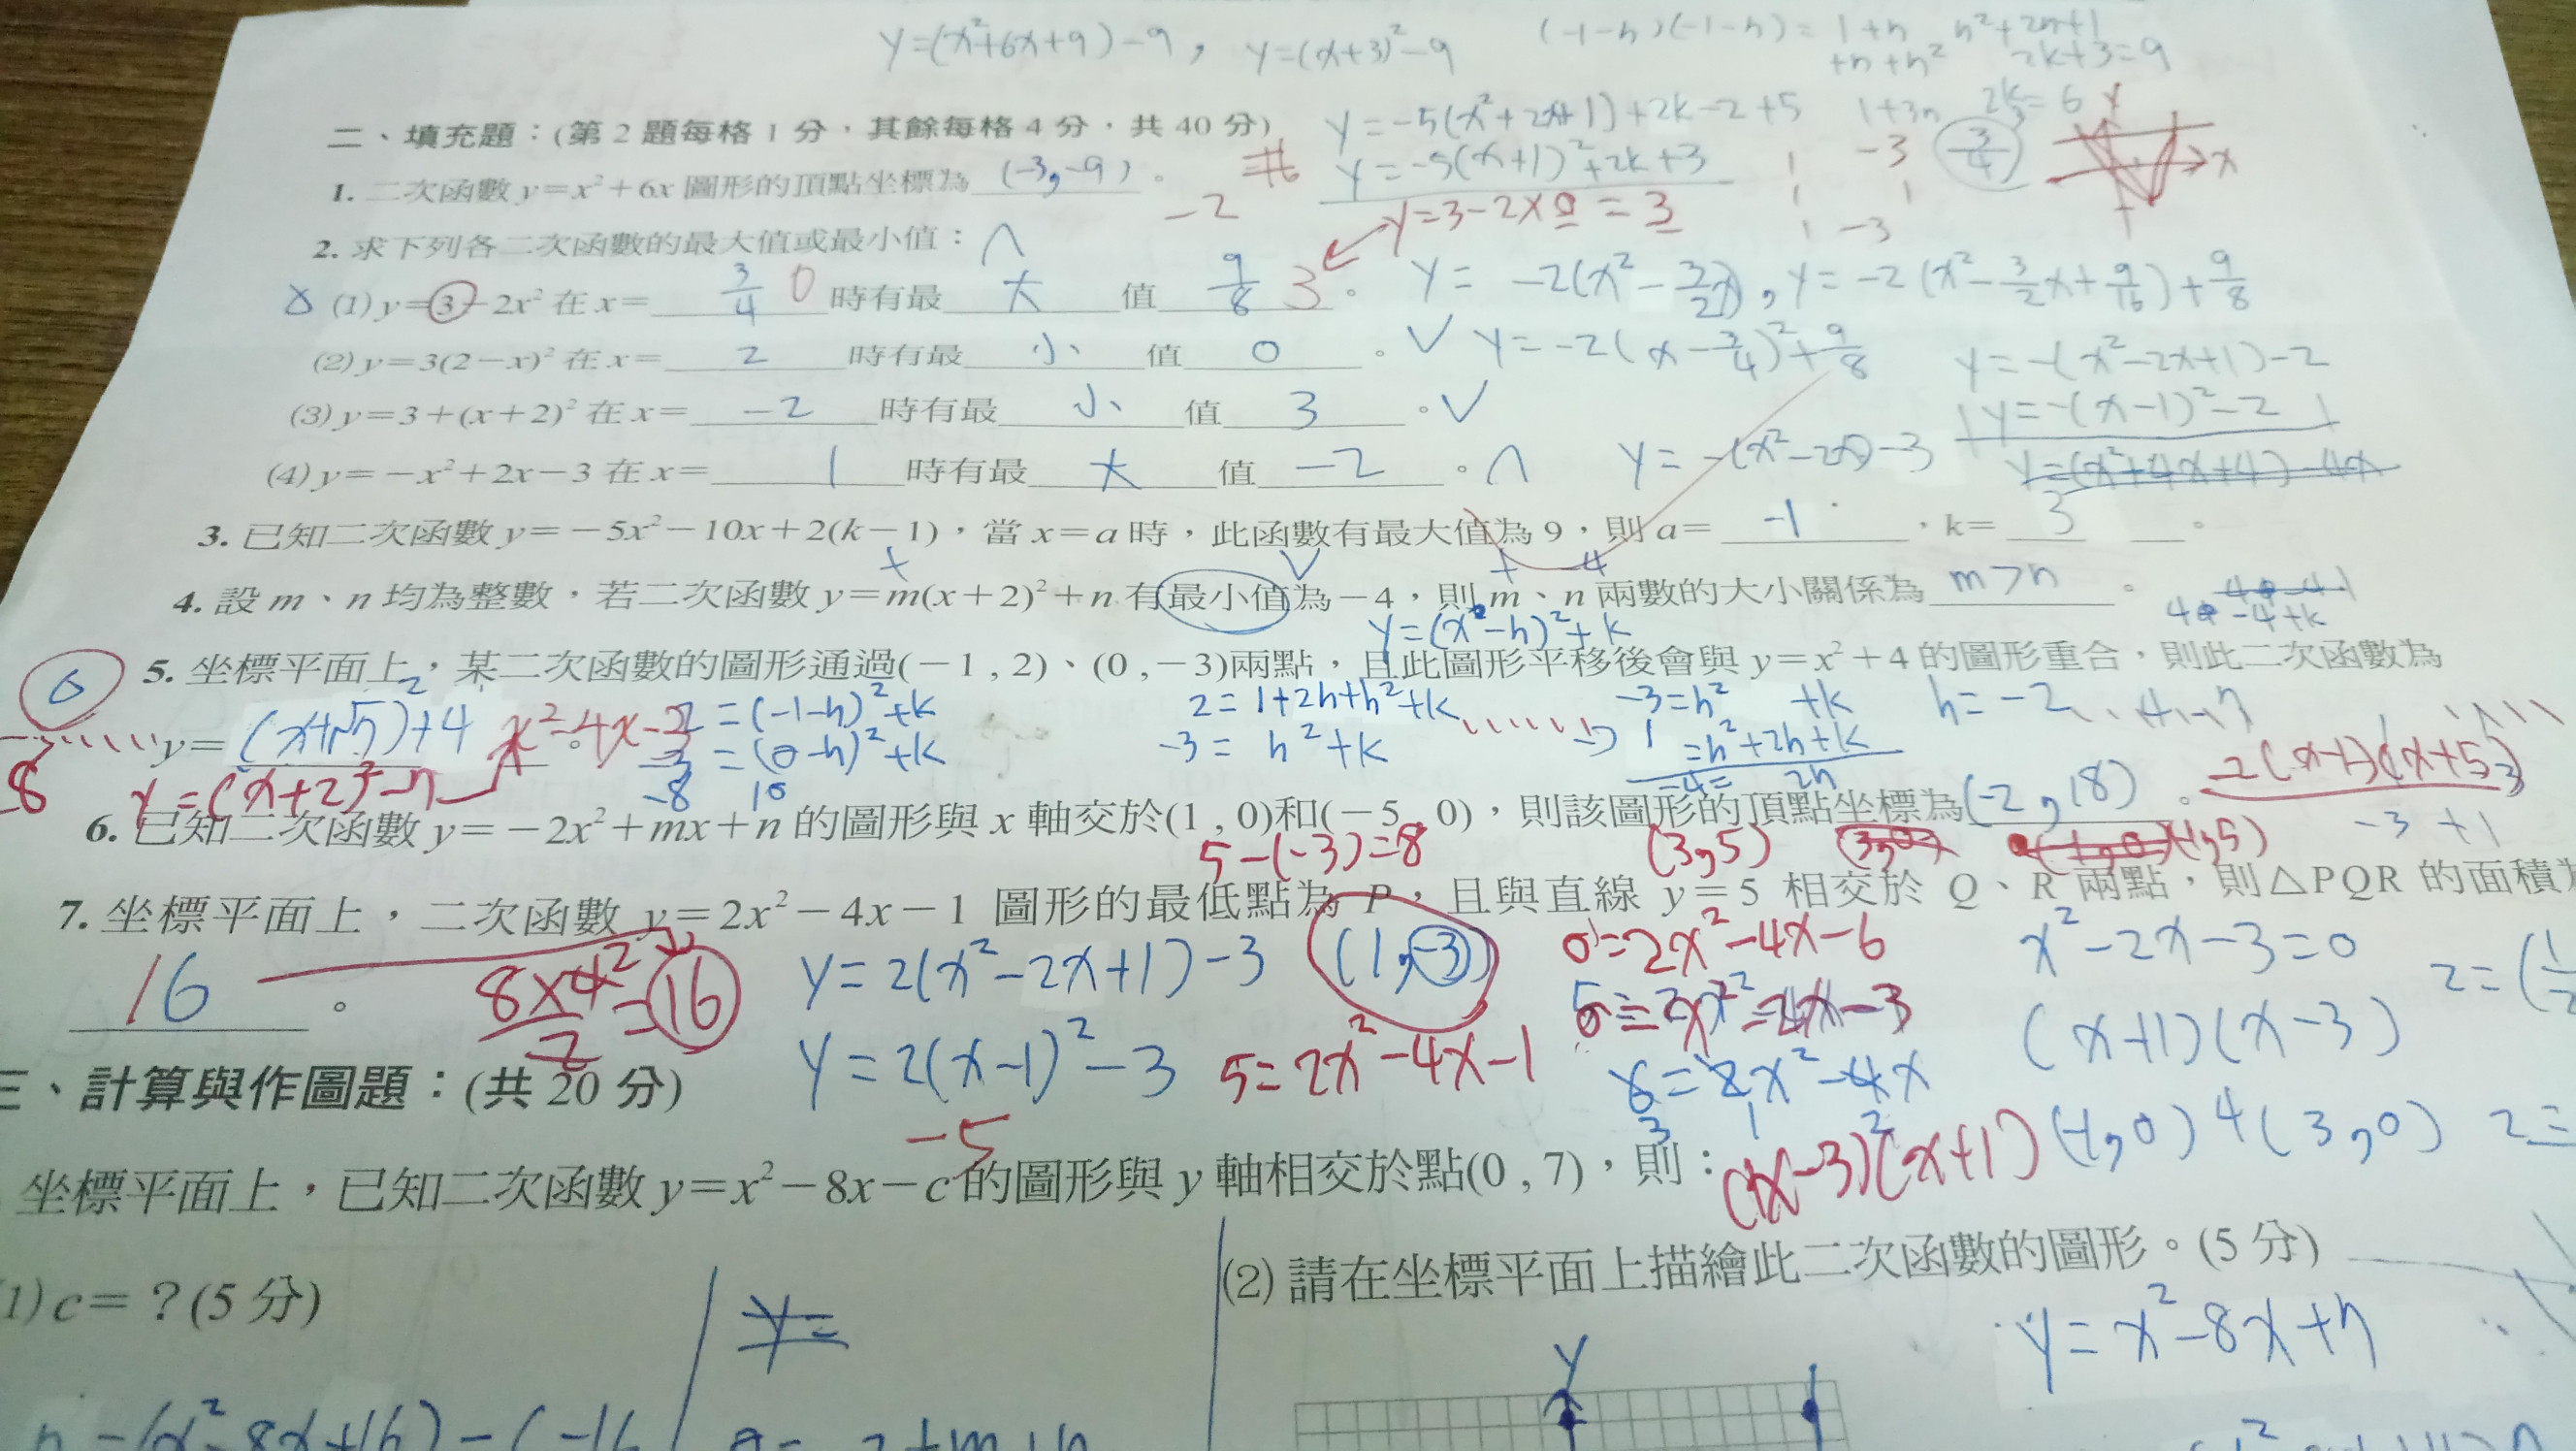 y=(x²+6x+9)-9, y=(x+3)²-9
(-1-h)(-1-h)=1+h h²+2h+1
+h+h² 2k+3=9
y=-5(x²+2x+1)+2k-2+5 1+3h 2k=6 y
二、填充題：(第 2 題每格 1 分，其餘每格 4 分，共 40 分)
y=-5(x+1)²+2k+3 -3 3/4 x
1. 二次函數 y=x²+6x 圖形的頂點坐標為 (-3,-9) 。
-2 y=3-2×0=3 -3
2. 求下列各二次函數的最大值或最小值：
(1) y=3-2x² 在 x= 3/4 0 時有最 大 值 9/8 3 。
y=-2(x²-3/2x), y=-2(x²-3/2x+9/16)+9/8
(2) y=3(2-x)² 在 x= 2 時有最 小 值 0 。
y=-2(x-3/4)²+9/8 y=-(x²-2x+1)-2
(3) y=3+(x+2)² 在 x= -2 時有最 小 值 3 。
y=-(x-1)²-2
(4) y=-x²+2x-3 在 x= 1 時有最 大 值 -2 。
y=-(x²-2x)-3 y=(x²+4x+4)-4x
3. 已知二次函數 y=-5x²-10x+2(k-1)，當 x=a 時，此函數有最大值為 9，則 a= -1 ，k= 3 。
+ + -4
4. 設 m、n 均為整數，若二次函數 y=m(x+2)²+n 有最小值為-4，則 m、n 兩數的大小關係為 m>n 。
y=(x-h)²+k
5. 坐標平面上，某二次函數的圖形通過(-1 , 2)、(0 , -3)兩點，且此圖形平移後會與 y=x²+4 的圖形重合，則此二次函數為
y= (x+√7)²+4 x²-4x-3 。
2=(-1-h)²+k 2=1+2h+h²+k -3=h² +k h=-2
-3=(0-h)²+k -3=h²+k 1=h²+2h+k
-8 y=(x+2)²-7 -8 10 -4=2h -2(x-1)(x+5)
6. 已知二次函數 y=-2x²+mx+n 的圖形與 x 軸交於(1 , 0)和(-5 , 0)，則該圖形的頂點坐標為 (-2,18) 。
-3 +1
5-(-3)=8 (3,5) (3,0) (-1,0) (-1,5)
7. 坐標平面上，二次函數 y=2x²-4x-1 圖形的最低點為 P，且與直線 y=5 相交於 Q、R 兩點，則△PQR 的面積為
16 。
8×4/2=16 y=2(x²-2x+1)-3 (1,-3) 0=2x²-4x-6 x²-2x-3=0
y=2(x-1)²-3 5=2x²-4x-1 6=2x²-4x (x+1)(x-3)
3 1 2
三、計算與作圖題：(共 20 分)
-5 (x-3)(x+1) (-1,0) 4 (3,0)
坐標平面上，已知二次函數 y=x²-8x-c 的圖形與 y 軸相交於點(0 , 7)，則：
(1) c=？(5 分)
y=
(2) 請在坐標平面上描繪此二次函數的圖形。(5 分)
y=x²-8x+7
y